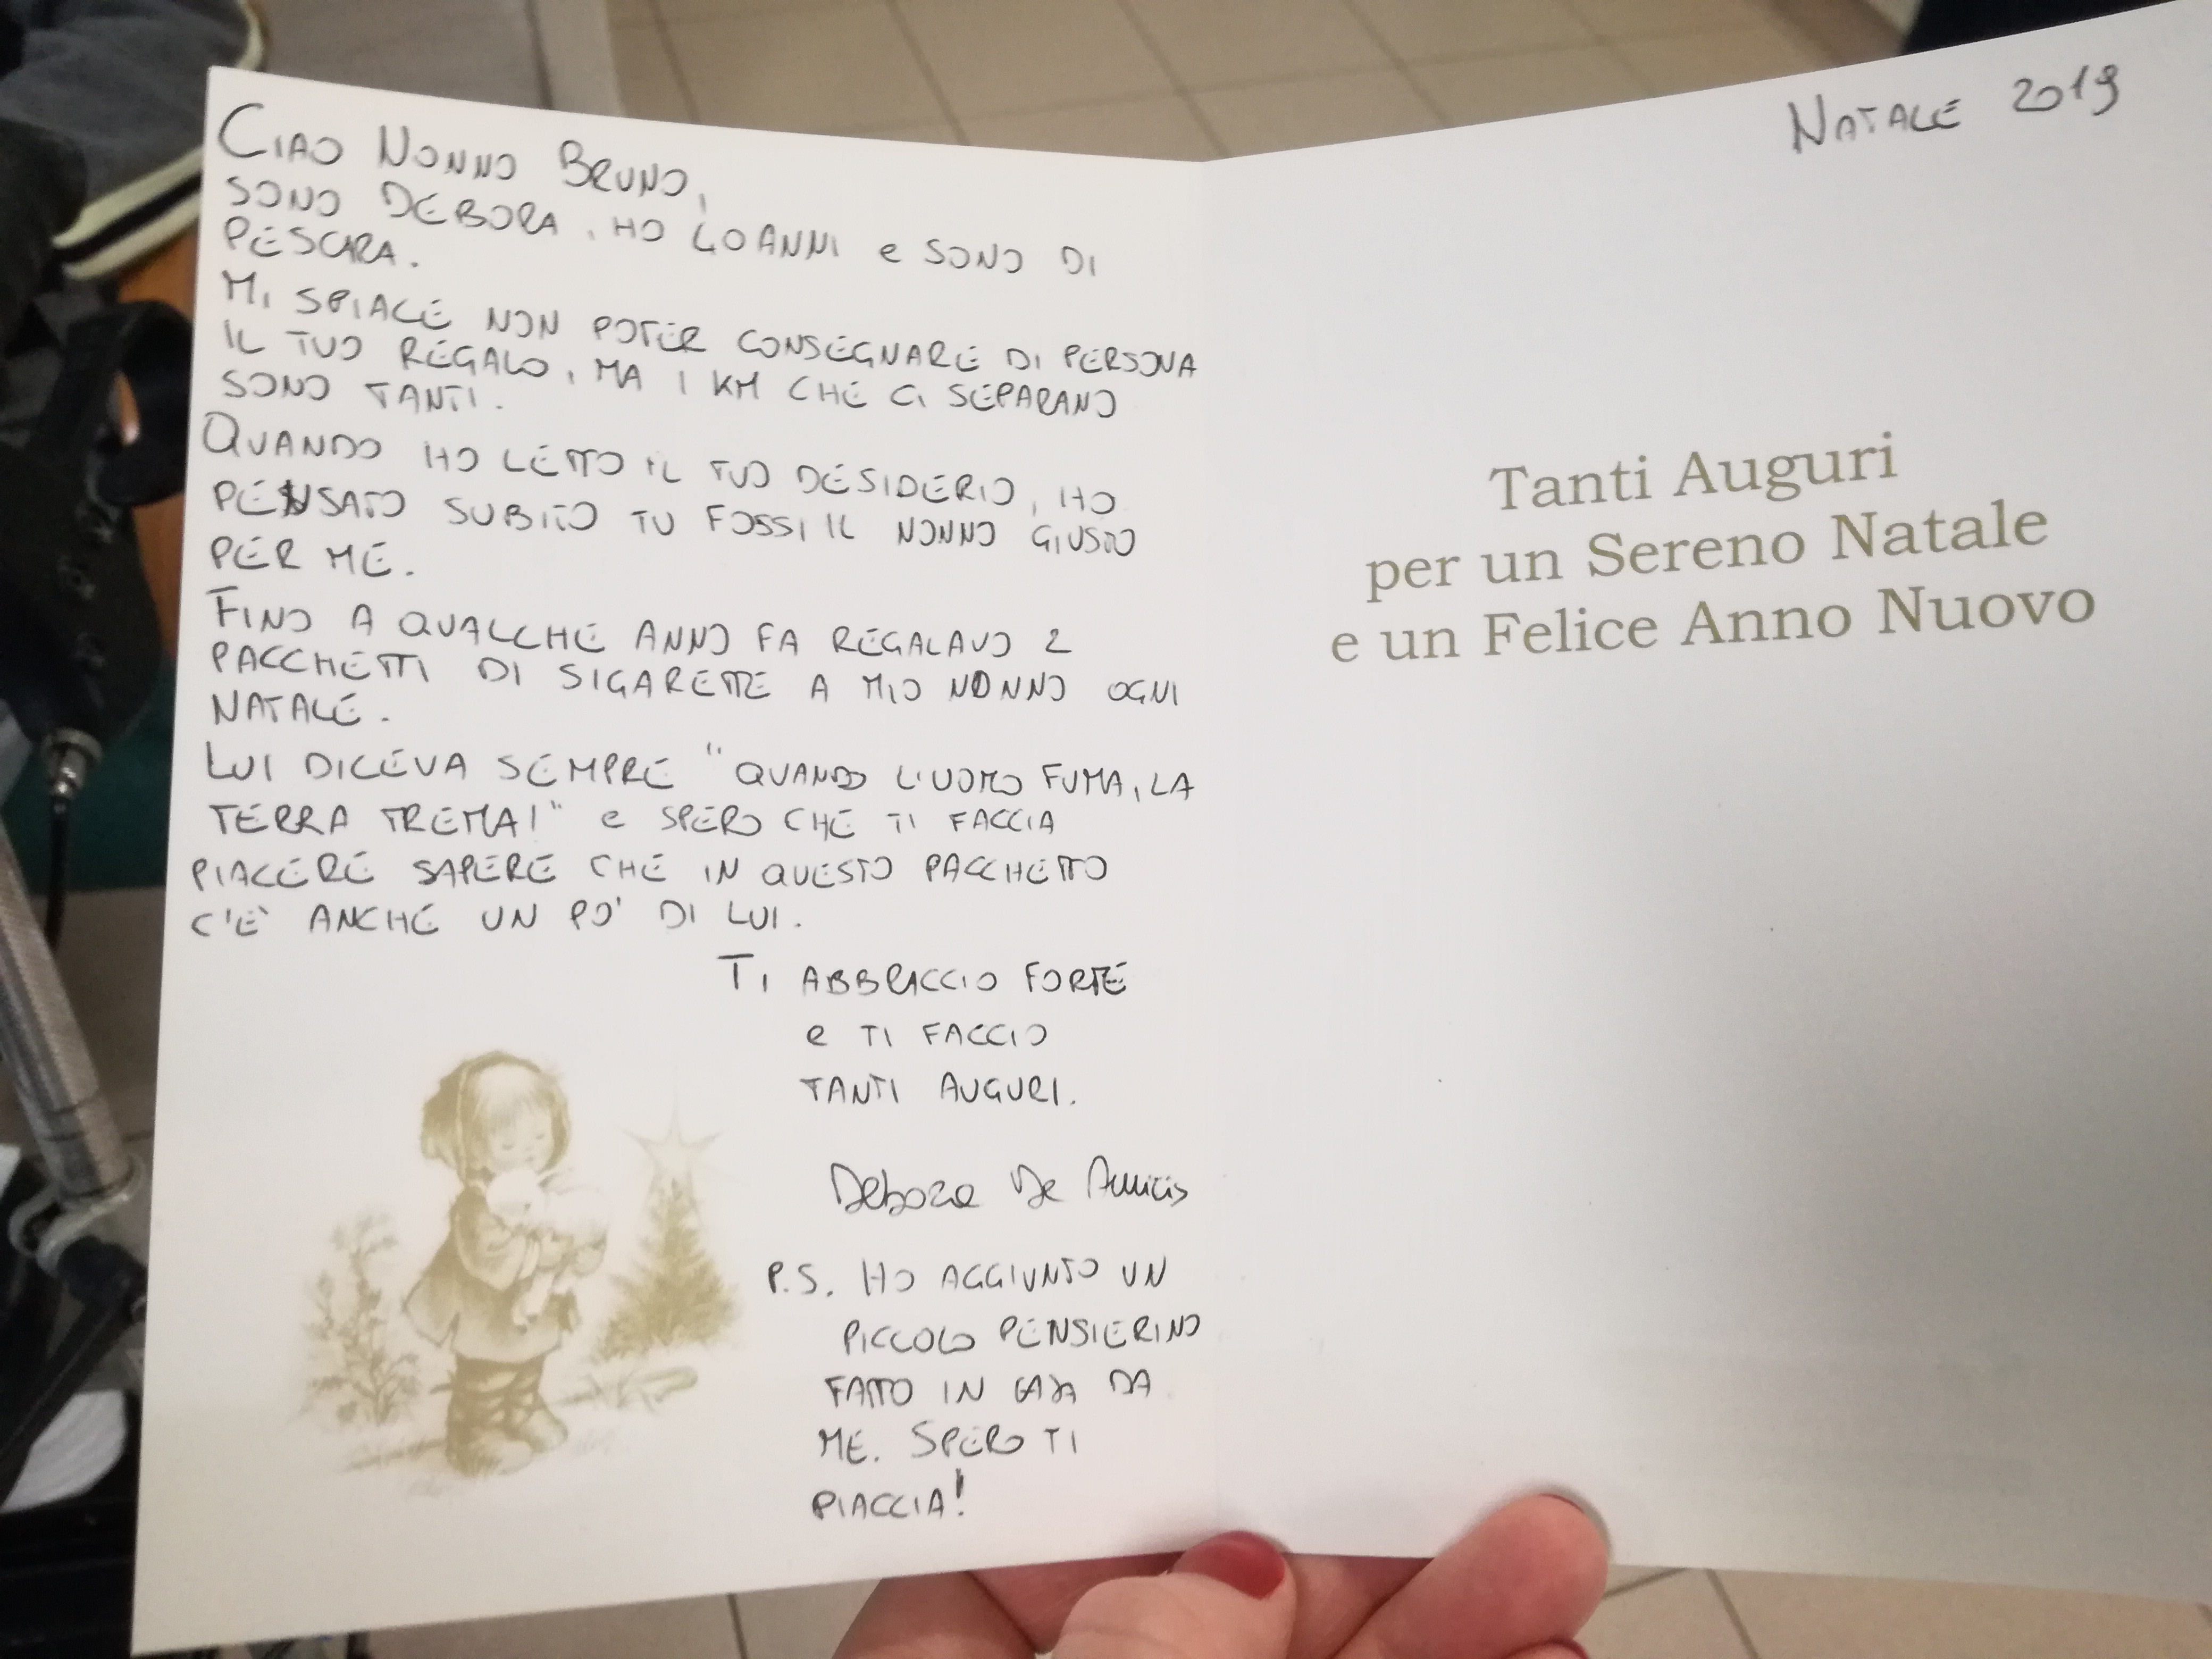 CIAO NONNO BRUNO,
SONO DEBORA, HO 40 ANNI e SONO DI
PESCARA.
MI SPIACE NON POTER CONSEGNARE DI PERSONA
IL TUO REGALO, MA I KM CHE CI SEPARANO
SONO TANTI.
QUANDO HO LETTO IL TUO DESIDERIO, HO
PENSATO SUBITO TU FOSSI IL NONNO GIUSTO
PER ME.
FINO A QUALCHE ANNO FA REGALAVO 2
PACCHETTI DI SIGARETTE A MIO NONNO OGNI
NATALE.
LUI DICEVA SEMPRE "QUANDO L'UOMO FUMA, LA
TERRA TREMA!" e SPERO CHE TI FACCIA
PIACERE SAPERE CHE IN QUESTO PACCHETTO
C'È ANCHE UN PO' DI LUI.
TI ABBRACCIO FORTE
e TI FACCIO
TANTI AUGURI.
Debora De Amicis
P.S. HO AGGIUNTO UN
PICCOLO PENSIERINO
FATTO IN CASA DA
ME. SPERO TI
PIACCIA!
NATALE 2019
Tanti Auguri
per un Sereno Natale
e un Felice Anno Nuovo